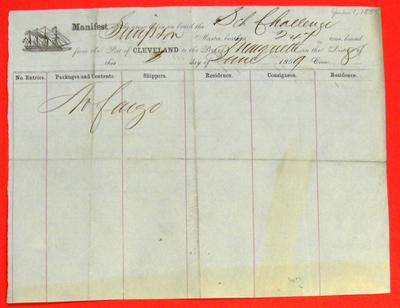 Manifest on board the Sch Challenge
Master, burthen 247 tons, bound
from the Port of CLEVELAND to the Port Marquette in the District of
this 8 day of June 1859 Crew 8
No. Entries. Packages and Contents. Shippers. Residence. Consignees. Residence.
No Cargo